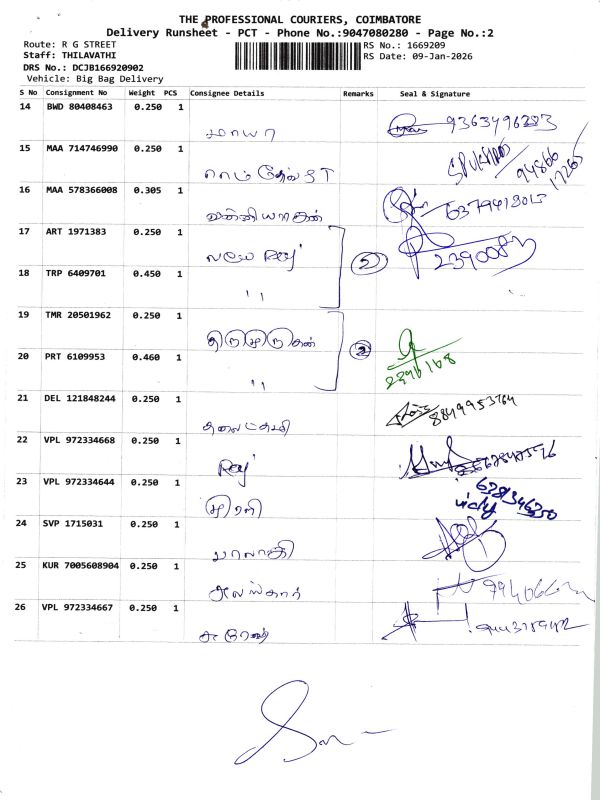 THE PROFESSIONAL COURIERS, COIMBATORE
Delivery Runsheet - PCT - Phone No.:9047080280 - Page No.:2
Route: R G STREET
RS No.: 1669209
Staff: THILAVATHI
RS Date: 09-Jan-2026
DRS No.: DCJB166920902
Vehicle: Big Bag Delivery
S No Consignment No Weight PCS Consignee Details Remarks Seal & Signature
14 BWD 80408463 0.250 1
மாயா 9363496283
15 MAA 714746990 0.250 1
94866
17265
16 MAA 578366008 0.305 1
வன்னியராஜன்
17 ART 1971383 0.250 1
Raj
2
18 TRP 6409701 0.450 1
"
19 TMR 20501962 0.250 1
திருமுருகன்
2
20 PRT 6109953 0.460 1
"
21 DEL 121848244 0.250 1
8849953764
22 VPL 972334668 0.250 1
Raj
23 VPL 972334644 0.250 1
முரளி
vicky
24 SVP 1715031 0.250 1
பாலாஜி
25 KUR 7005608904 0.250 1
26 VPL 972334667 0.250 1
சுரேஷ்